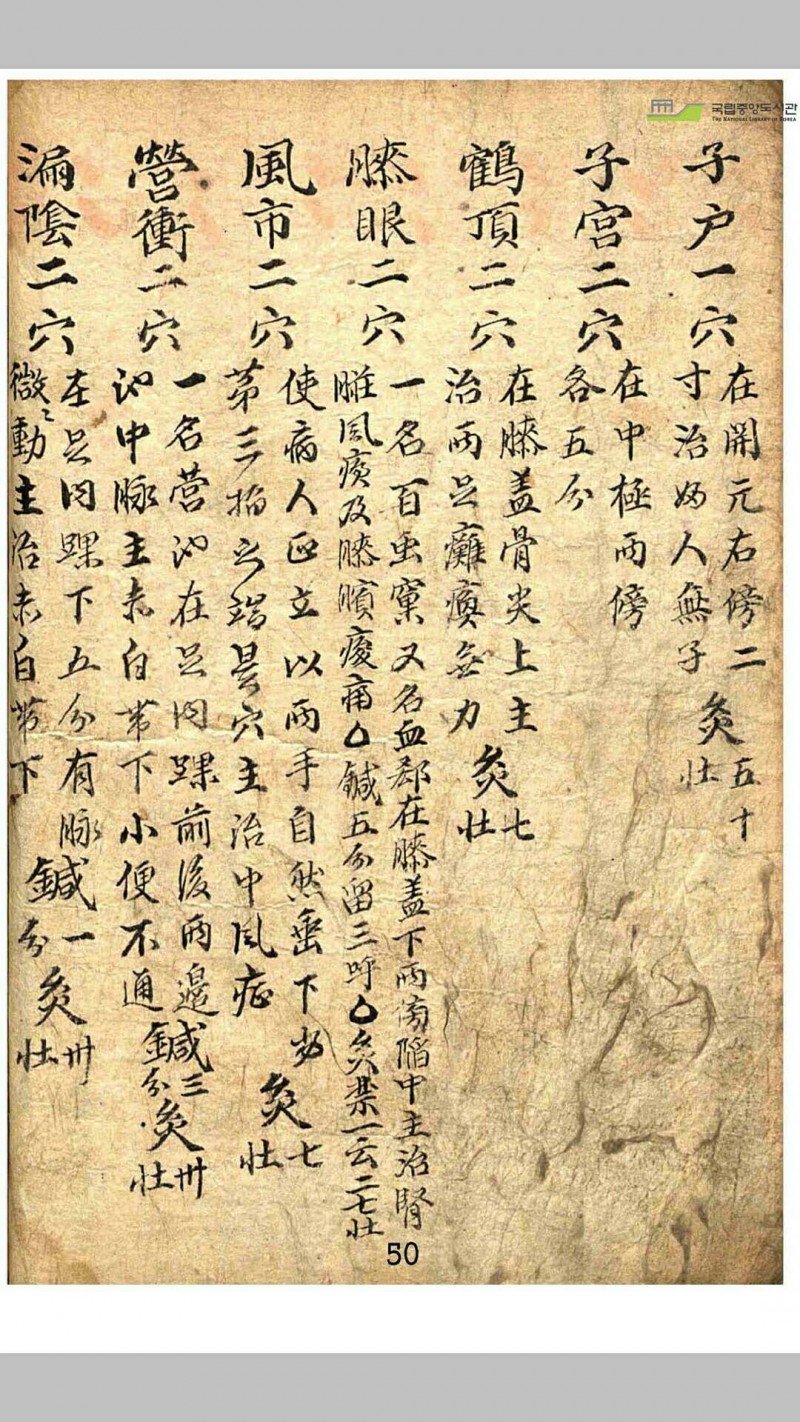 국립중앙도서관
THE NATIONAL LIBRARY OF KOREA
子户一穴
在開元右傍二
寸治妇人無子
灸五十
壮
子宮二穴
在中極両傍
各五分
鶴頂二穴
在膝盖骨尖上主
治両足癱瘓無力
灸七
壮
膝眼二穴
一名百虫窠又名血郄在膝盖下両傍陥中主治腎
臟風瘡及膝臏痠痛△鍼五分留三呼△灸禁一云二七壮
風市二穴
使病人正立以両手自然垂下当
第三指之端是穴主治中風症
灸七
壮
營衝二穴
一名营池在足内踝前後両邊
池中脉主赤白帯下小便不通
鍼三
分
灸卅
壮
漏陰二穴
在足内踝下五分有脉
微〻動主治赤白帯下
鍼一
分
灸卅
壮
50